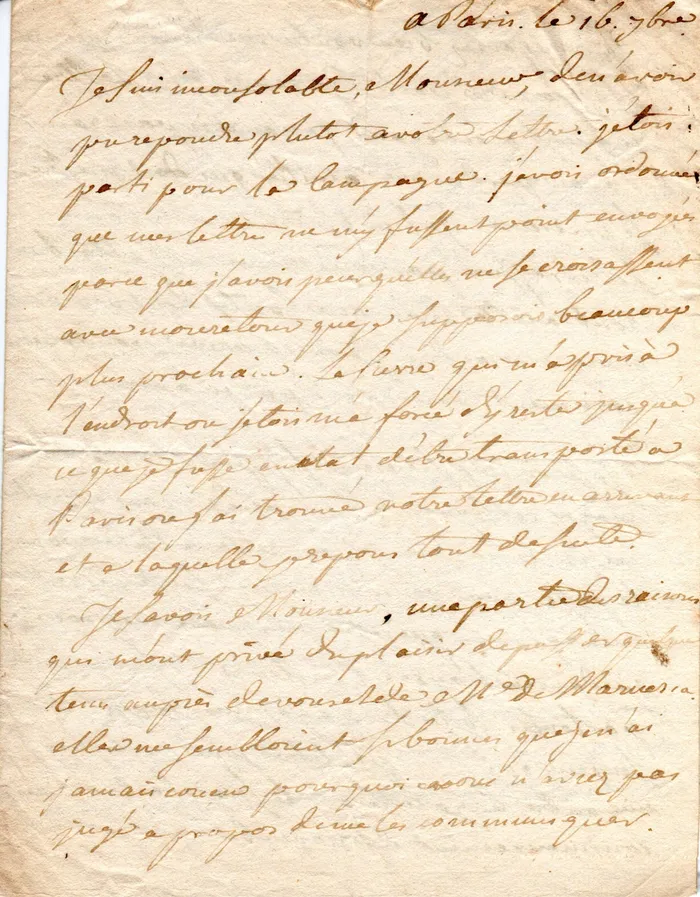 a Paris. le 16. 7bre
Je suis inconsolable, Monsieur, de n'avoir
pu repondre plutot a votre Lettre. j'etois
parti pour la Campagne. j'avois ordonné
que mes lettre ne m'y fussent point envoyés
parce que j'avois peur qu'elles ne se croisassent
avec mon retour que je supposois beaucoup
plus prochain. la fievre qui m'a pris à
l'endroit ou j'etois m'a forcé d'y reste jusqu'a
ce que je fusse en etat d'être transporté a
Paris ou j'ai trouvé votre Lettre en arrivant
et a laquelle je repons tout de suite.
Je savois Monsieur, une partie des raisons
qui m'ont privé du plaisir de passer quelque
tems auprès de vous et de Me. de
elles me sembloient si bonnes que je n'ai
jamais concu pourquoi vous n'aviez pas
jugé a propos de me les communiquer.